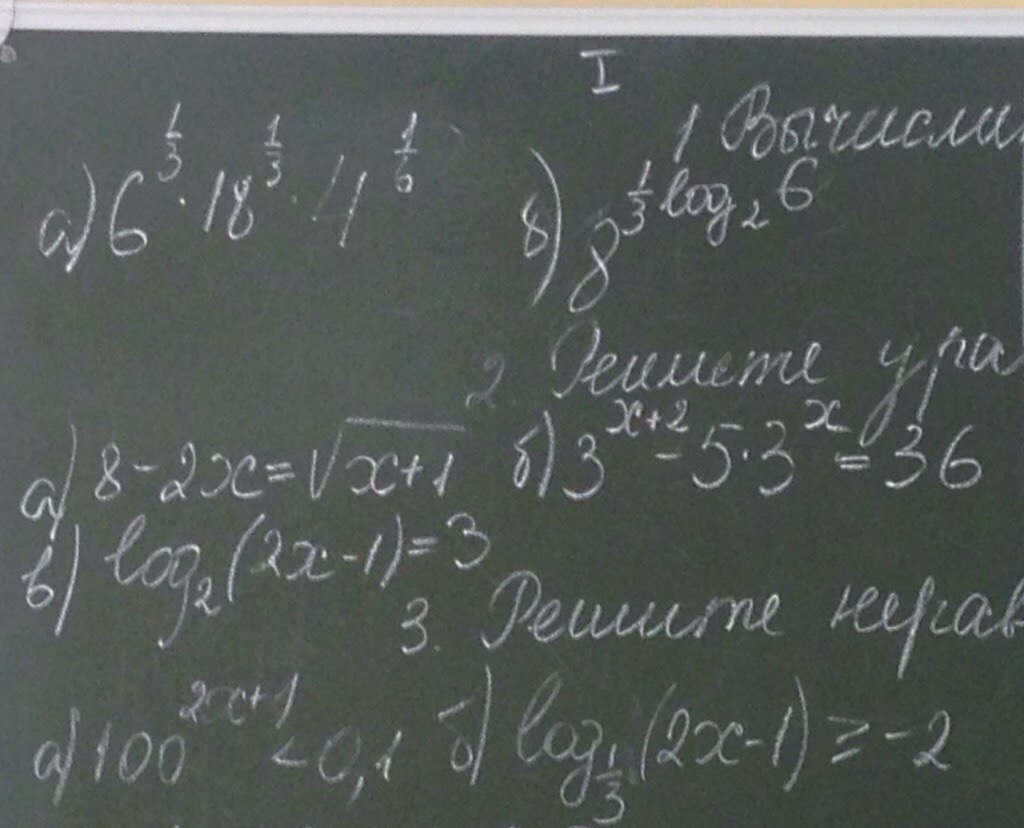 I
1 Вычисли
а) 6^{1/3} · 18^{1/3} · 4^{1/6} в) 8^{1/3 log_2 6}
2. Решите ура
а) 8 - 2x = √(x+1) б) 3^{x+2} - 5·3^x = 36
в) log_2(2x-1) = 3
3. Решите нерав
а) 100^{2x+1} < 0,1 б) log_{1/3}(2x-1) ≥ -2